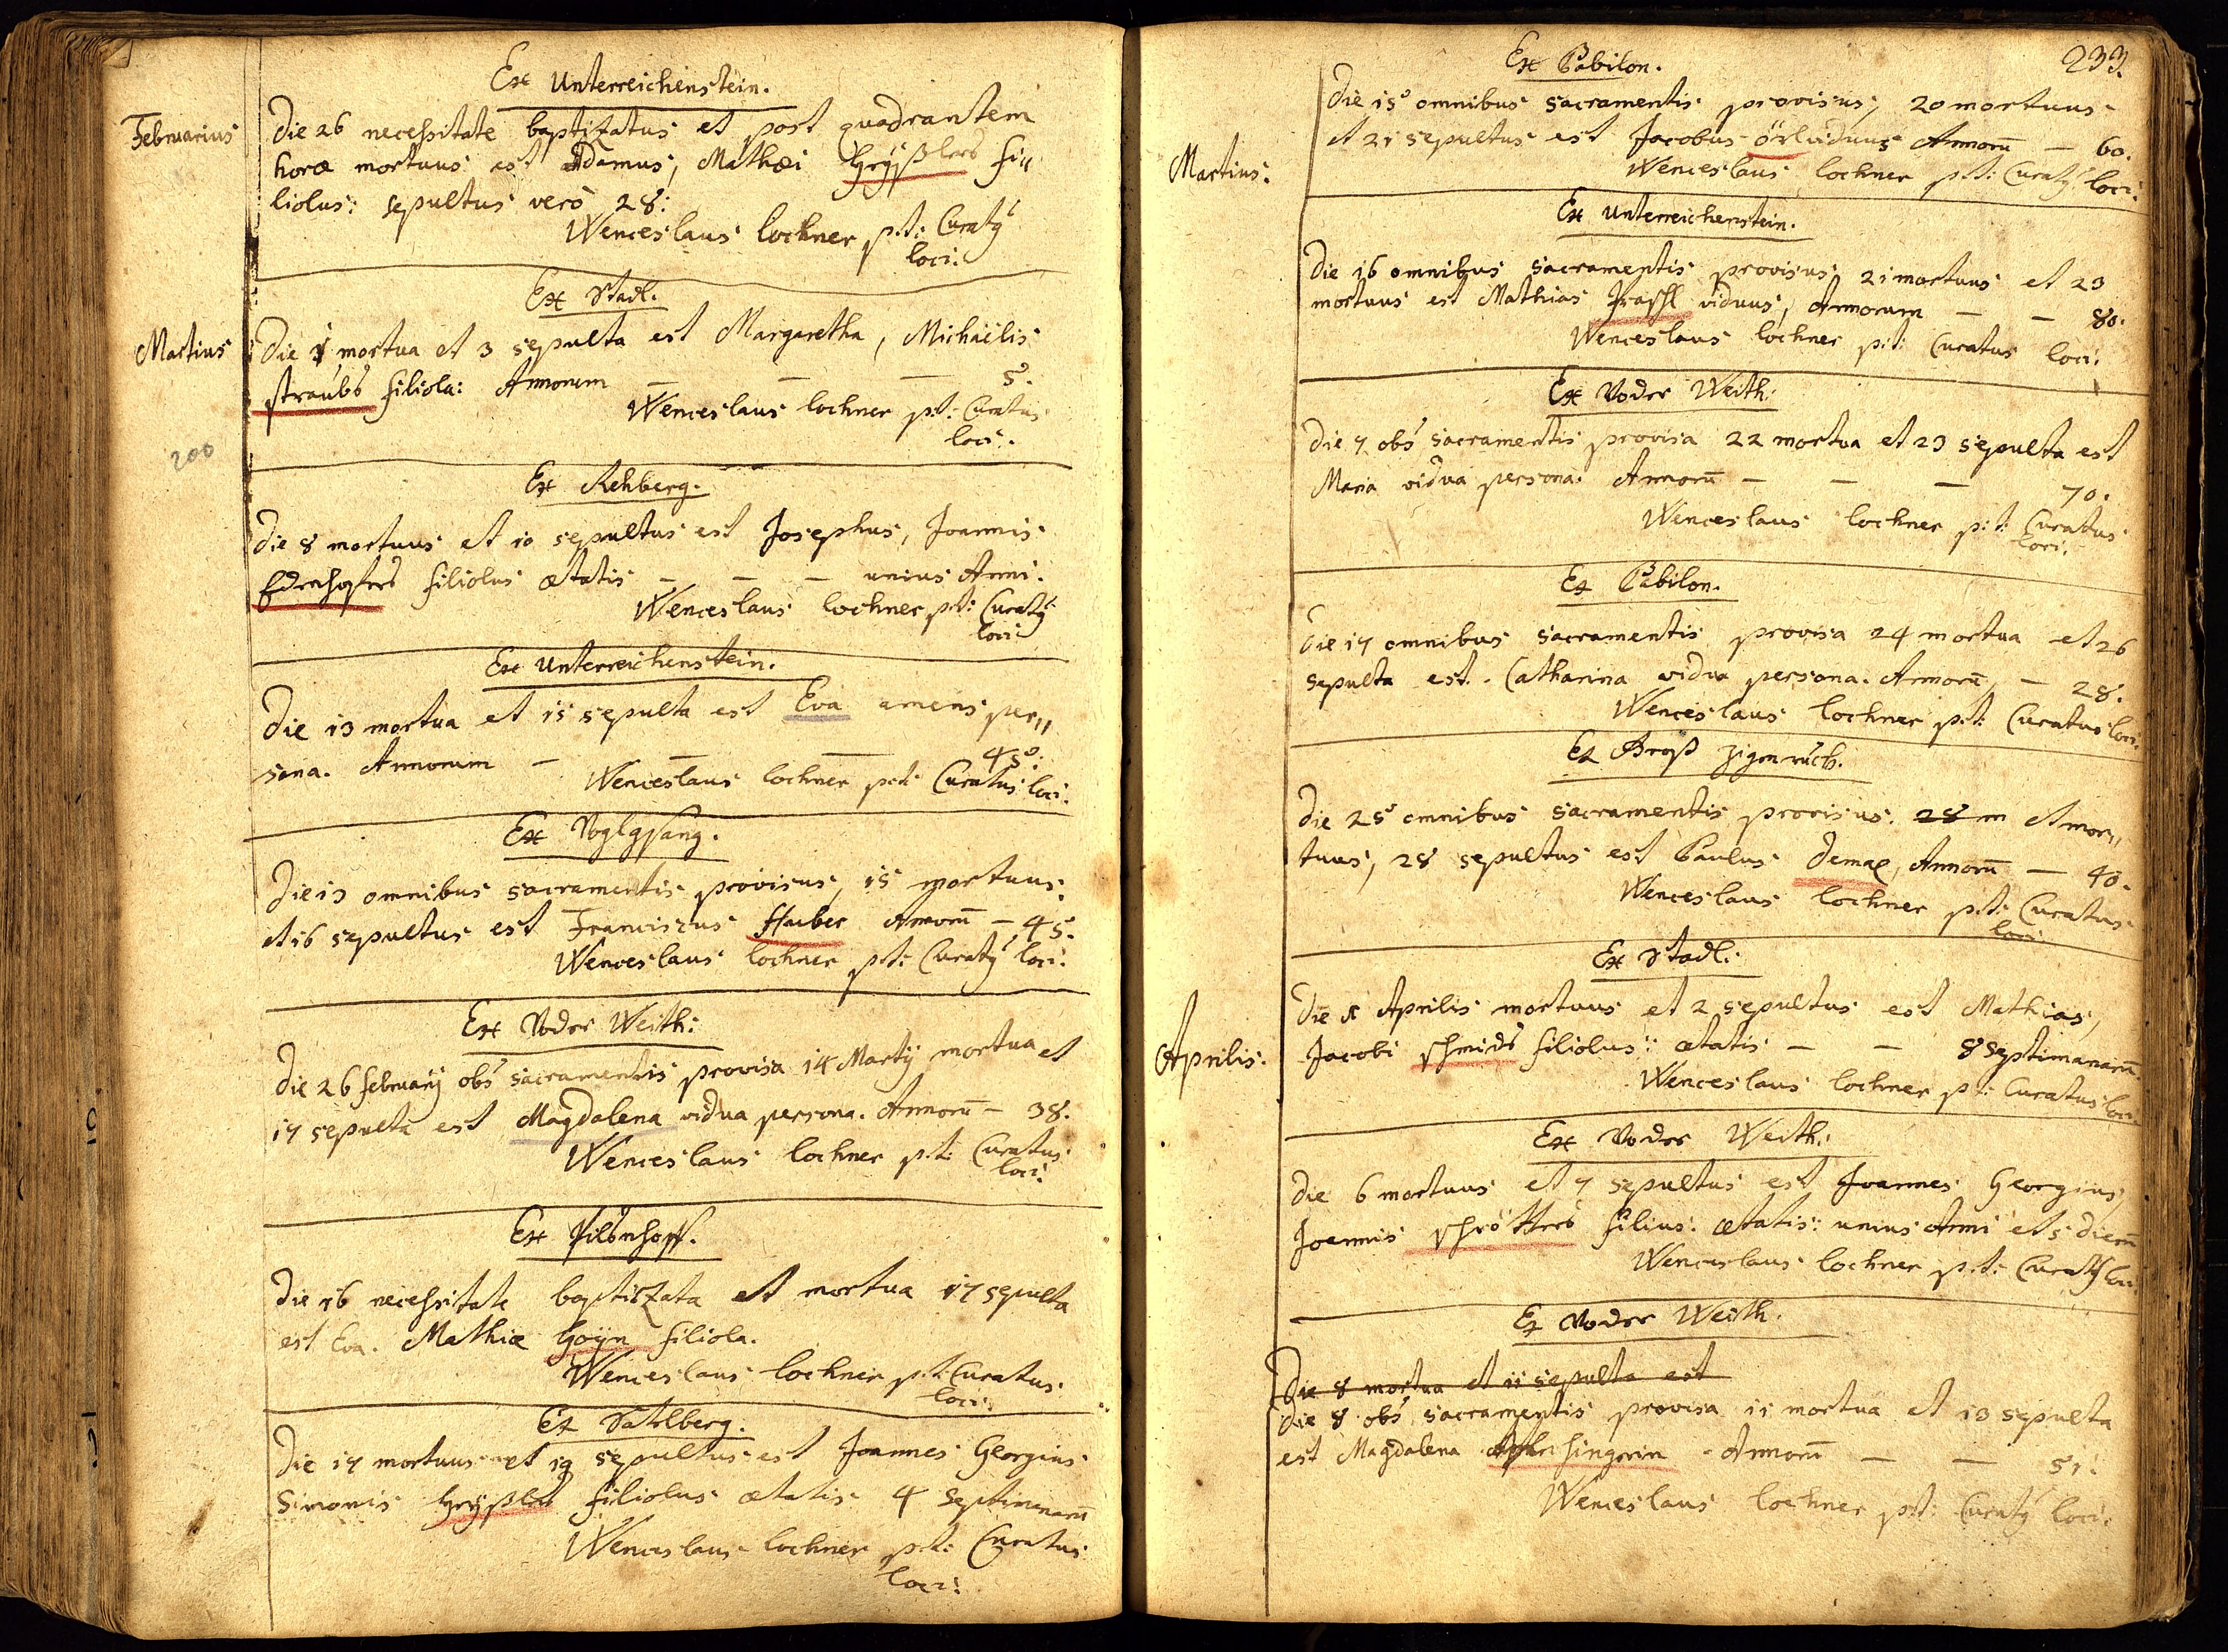 Ex Unterreichenstein.
Februarius
Die 26 necessitate baptizatus et post quadrantem
horæ mortuus est Adamus, Mathæi Greÿßlers fi„
liolus: sepultus verò 28:
Wenceslaus Lochner p:t: Curatÿ
loci:
Ex Stadl:
Martius
Die 1 mortua et 3 sepulta est Margaretha, Michaëlis
straubs filiola: Annorum — — — 5.
Wenceslaus Lochner p:t: Curatus
loci:
200
Ex Rehberg.
Die 8 mortuus et 10 sepultus est Josephus, Joannis
filiolus ætatis — — — unius Anni.
Wenceslaus Lochner p:t: Curatÿ
loci:
Ex Unterreichenstein.
Die 13 mortua et 15 sepulta est Eva amens per„
sona. Annorum — — — 45:
Wenceslaus Lochner p:t: Curatus loci:
Ex Voglgsang.
Die 13 omnibus sacramentis provisus, 15 mortuus
et 16 sepultus est Franciscus Huber Annorū — 45.
Wenceslaus Lochner p:t: Curatÿ loci:
Ex Voder Weith:
Die 26 februarÿ obs sacramentis provisa 14 Martÿ mortua et
17 sepulta est Magdalena vidua persona. Annorū — 38.
Wenceslaus Lochner p:t: Curatus
loci:
Ex
Die 16 necessitate baptizata et mortua 17 sepulta
est Eva. Mathiæ Goÿn filiola.
Wenceslaus Lochner p:t: Curatus
loci:
Ex Sattlberg.
Die 17 mortuus et 19 sepultus est Joannes Georgius
Simonis Greÿßlers filiolus ætatis 4 Septimanarū
Wenceslaus Lochner p:t: Curatus
loci:
233.
Ex Babilon.
Martius:
Die 15 omnibus sacramentis provisus, 20 mortuus
et 21 sepultus est Jacobus viduus Annorū — 60.
Wenceslaus Lochner p:t: Curatÿ loci:
Ex Unterreichenstein.
Die 16 omnibus sacramentis provisus 21 mortuus et 23
mortuus est Mathias viduus, Annorum — — 80.
Wenceslaus Lochner p:t: Curatus loci:
Ex Voder Weith:
Die 7 obs sacramentis provisa 22 mortua et 23 sepulta est
Maria vidua persona. Annorū — — — 70.
Wenceslaus Lochner p:t: Curatus
loci:
Ex Babilon.
Die 17 omnibus sacramentis provisa 24 mortua et 26
sepulta est. Catharina vidua persona. Annorū — 28.
Wenceslaus Lochner p:t: Curatus loci:
Ex Groß Zigenruckh.
Die 25 omnibus sacramentis provisus. 28 m et mor„
tuus, 28 sepultus est Paulus Demæl, Annorū — 40.
Wenceslaus Lochner p:t: Curatus
loci:
Ex Stadl:
Aprilis:
Die 1 Aprilis mortuus et 2 sepultus est Mathias,
Jacobi schmids filiolus: ætatis — — 8 Septimanarū.
Wenceslaus Lochner p:t: Curatus loci.
Ex Voder Weith:
Die 6 mortuus et 7 sepultus est Joannes Georgius,
Joannis schrötters filius: ætatis: unius Anni et 5 dierū
Wenceslaus Lochner p:t: Curatÿ loci.
Ex Voder Weith.
Die 8 mortua et 11 sepulta est
Die 8 obs sacramentis provisa 11 mortua et 13 sepulta
est Magdalena Annorū — — 51:
Wenceslaus Lochner p:t: Curatÿ loci: